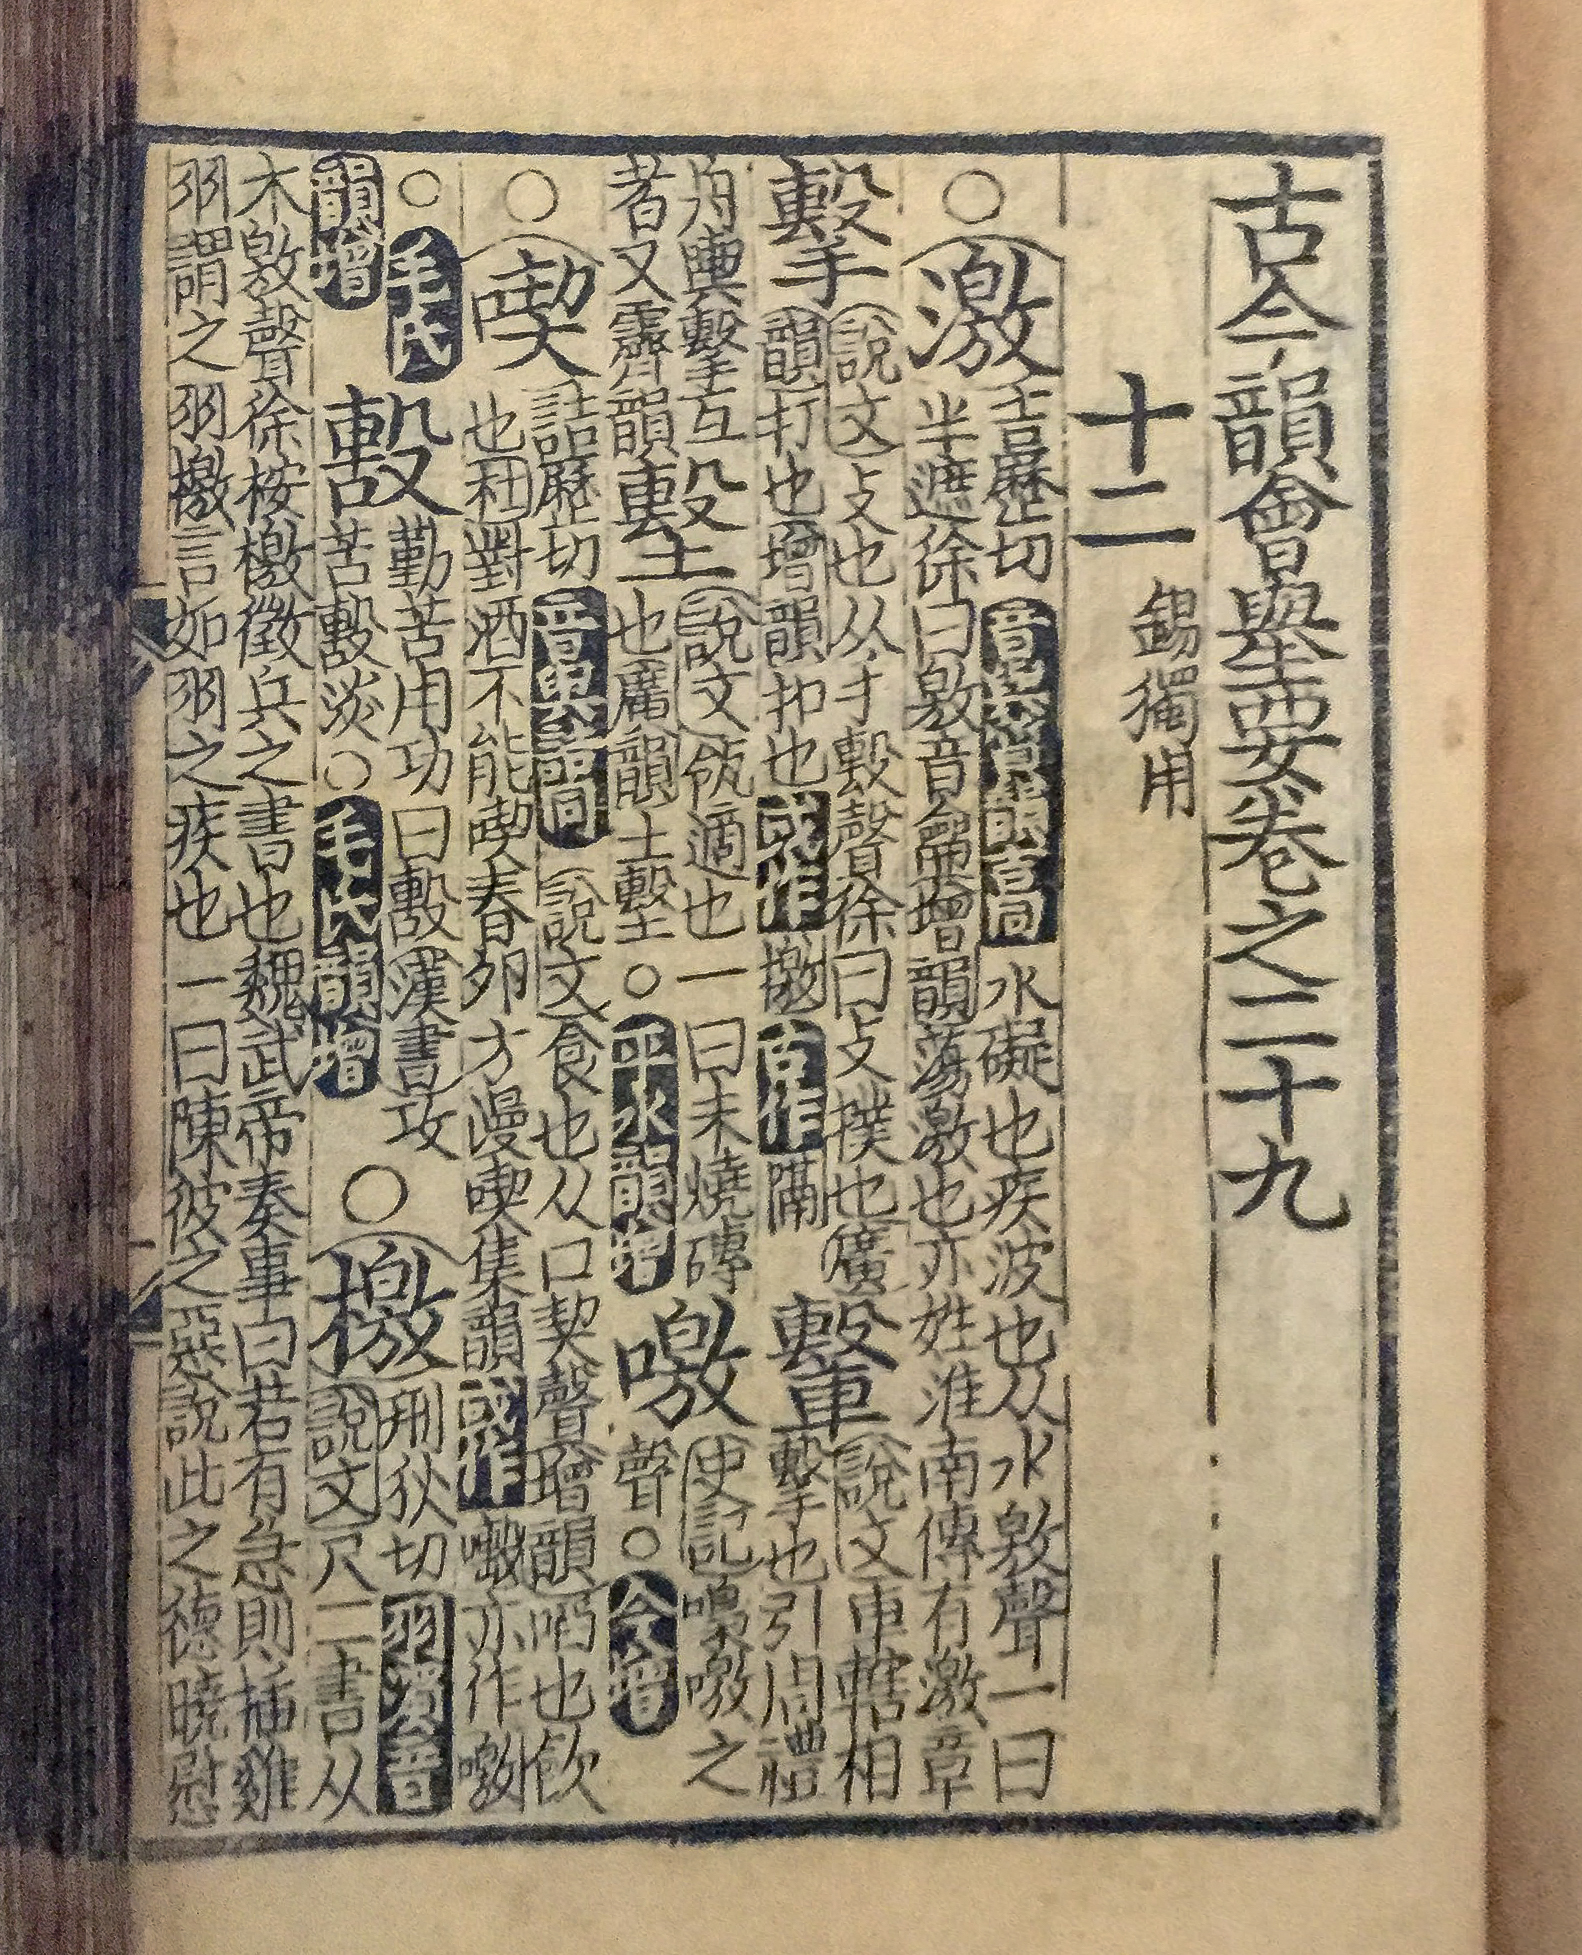 古今韻會舉要卷之二十九
十二 錫獨用
○激
吉歷切音與質韻吉同水礙也疾波也从水敫聲一曰
半遮徐曰敫音龠增韻蕩激也亦姓淮南傳有激章
擊
說文攴也从手毄聲徐曰攴撲也廣
韻打也增韻扣也或作撽古作隔
轚
說文車轄相
擊也引周禮
舟輿擊互
者又霽韻
墼
說文瓴適也一曰未燒磚
也廣韻土墼○平水韻增
噭
史記嘄噭之
聲○今增
○喫
詰歷切音與詰同說文食也从口契聲增韻啗也飲
也杜對酒不能喫春夘方漫喫集韻或作亦作噭
○毛氏
韻增
毄
勤苦用功曰毄漢書攻
苦毄淡○毛氏韻增
○檄
刑狄切羽濁音
說文尺二書从
木敫聲徐按檄徵兵之書也魏武帝奏事曰若有急則插雞
羽謂之羽檄言如羽之疾也一曰陳彼之惡說此之德曉慰